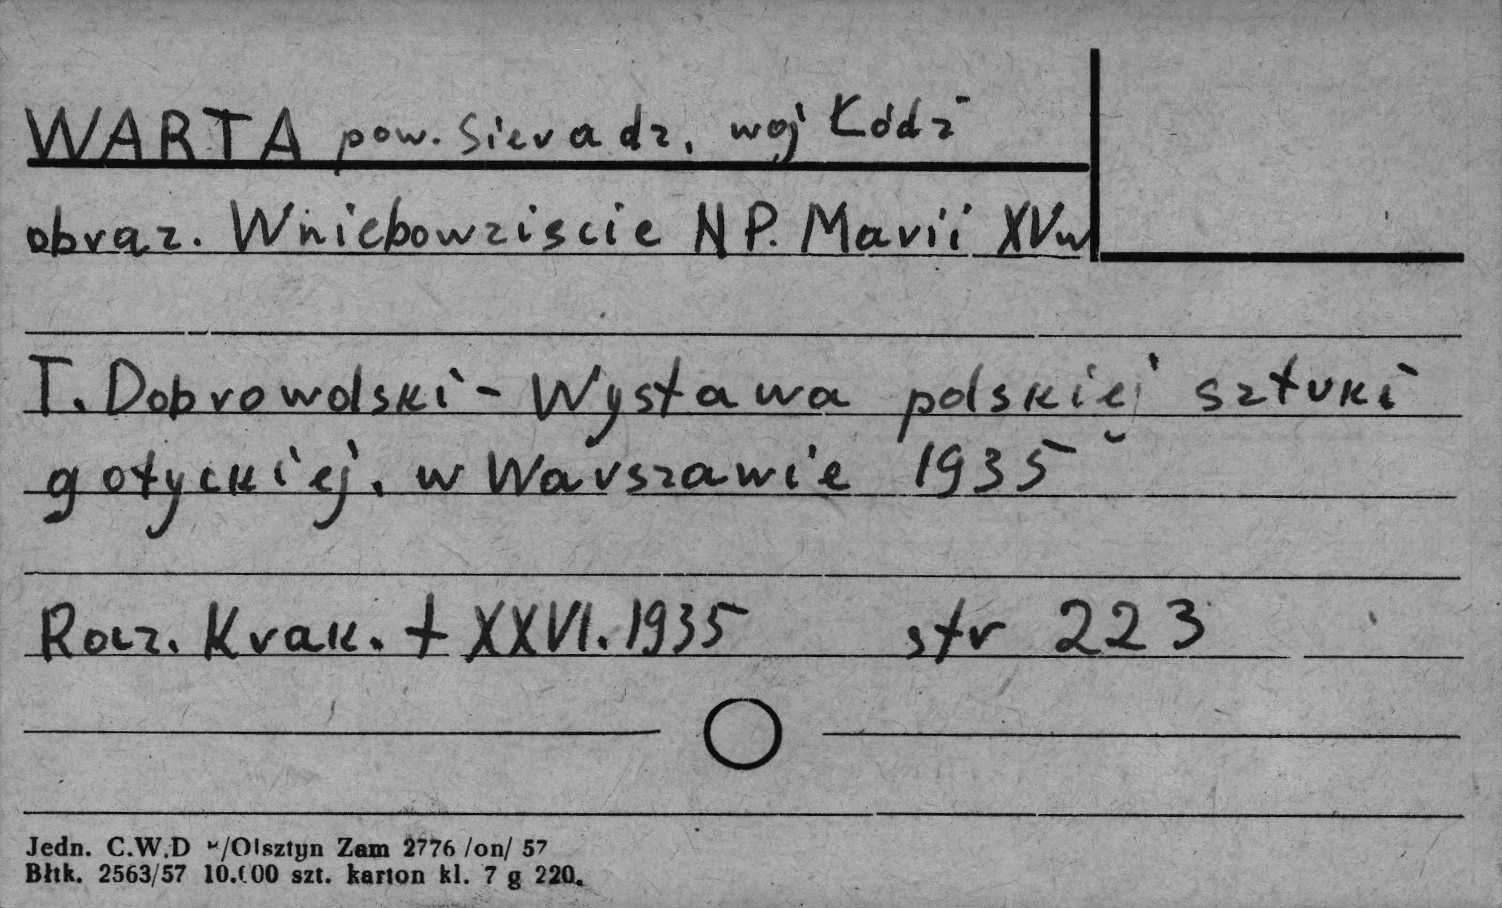 WARTA pow. Sieradz, woj Łódź
obraz. Wniebowziscie NP. Marii XVw
T. Dobrowolski - Wystawa polskiej sztuki
gotyckiej. w Warszawie 1935
Rocz. Krak. t XXVI. 1935 str 223
Jedn. C.W.D w/Olsztyn Zam 2776 /on/ 57
Błtk. 2563/57 10.000 szt. karton kl. 7 g 220.